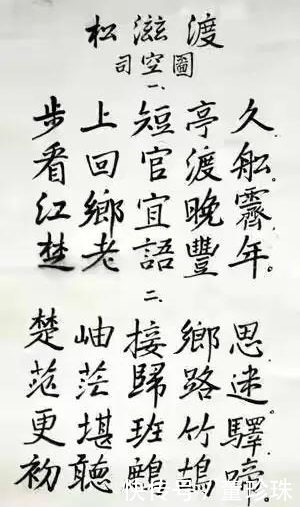 松滋渡
司空圖
一、
步上短亭久，
看回官渡舩。
江鄉宜晚霽，
楚老語豐年。
二、
楚岫接鄉思，
茫茫歸路迷。
更堪班竹驛，
初聽鷓鴣啼。
快传号/董珍珠